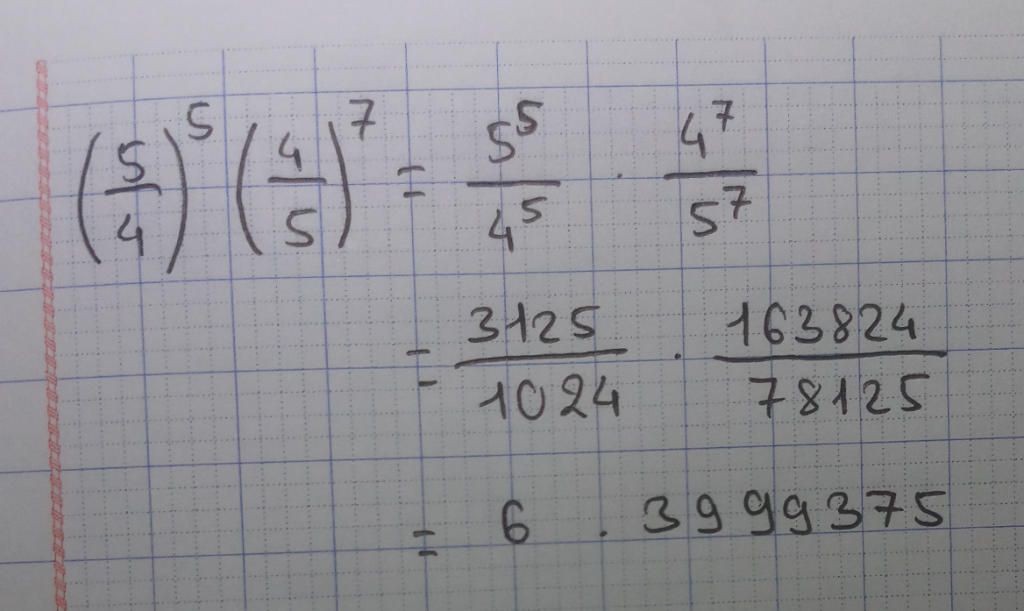 (5/4)^5 (4/5)^7 = 5^5/4^5 · 4^7/5^7
= 3125/1024 · 163824/78125
= 6 . 3999375